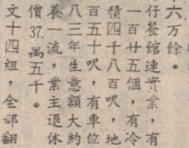 六万餘。
仔餐馆連實業，有
一百廿五個，有冷
積四千八百呎，地
百五十呎，有車位
八三年生意額大約
養一流，業主退休
價37萬五千。
文十四組，全部翻